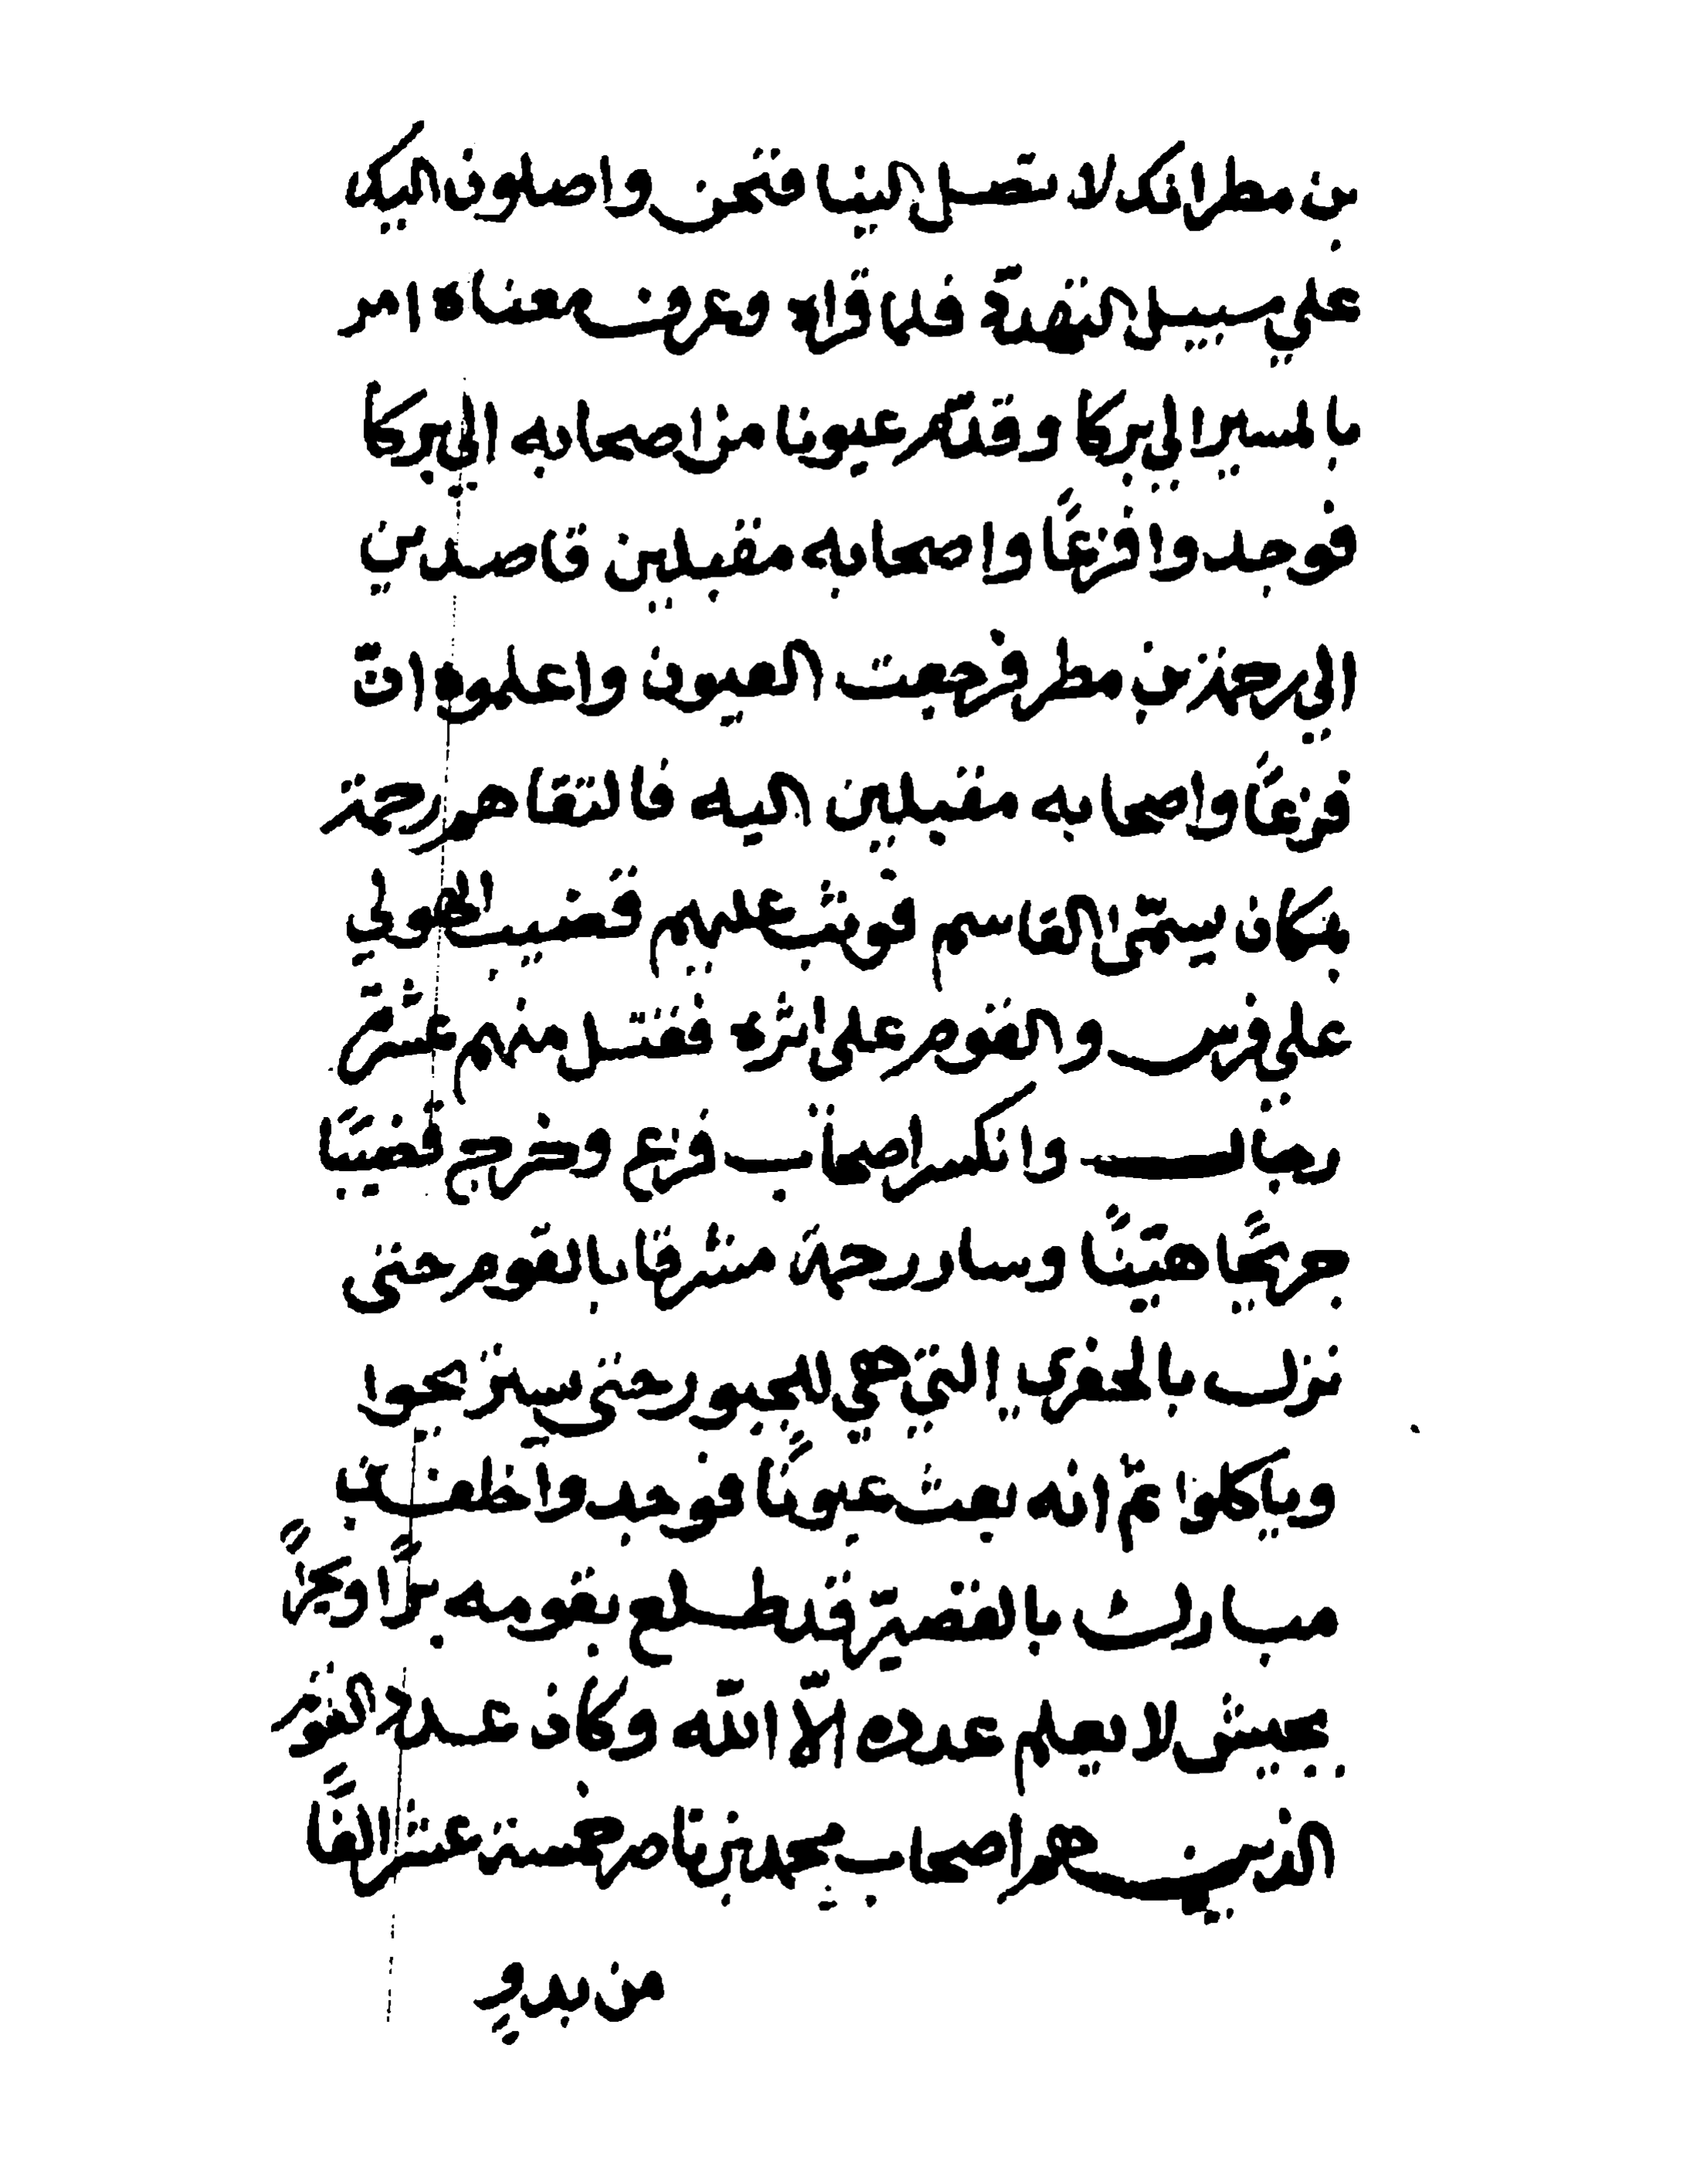 بن مطر انك لا تصل الينا فنحن واصلون اليك
على سبيل النقدة فلما قراه وعرف معناه امر
بالمسير الي بركا وقدّم عيونا من اصحابه الي بركا
فوجدوا فزعًا واصحابه مقبلين قاصدين
الي رحمة بن مطر فرجعت العيون واعلموه انّ
فزعًا واصحابه مقبلين اليه فالتقاهم رحمة
بمكان يسمّى القاسم فوثب عليهم قضيب الهولي
علي فرس والقوم على اثره فقتل منهم عشرة
رجال وانكسر اصحاب فزع وخرج قضيبًا
جريحًا هيّنًا وسار رحمة مشرقا بالقوم حتى
نزل بالحفري التي هي للجبور حتى يستريحوا
وياكلوا ثمّ انه بعث عيونًا فوجدوا خلف بن
مبارك بالقصيّر قد طلع بقومه برًّا وبحرًا
بجيش لا يعلم عدده الّا اللّه وكان عدد القوم
الذين هم اصحاب محمد بن ناصر خمسة عشر الفًا
من بدوٍ